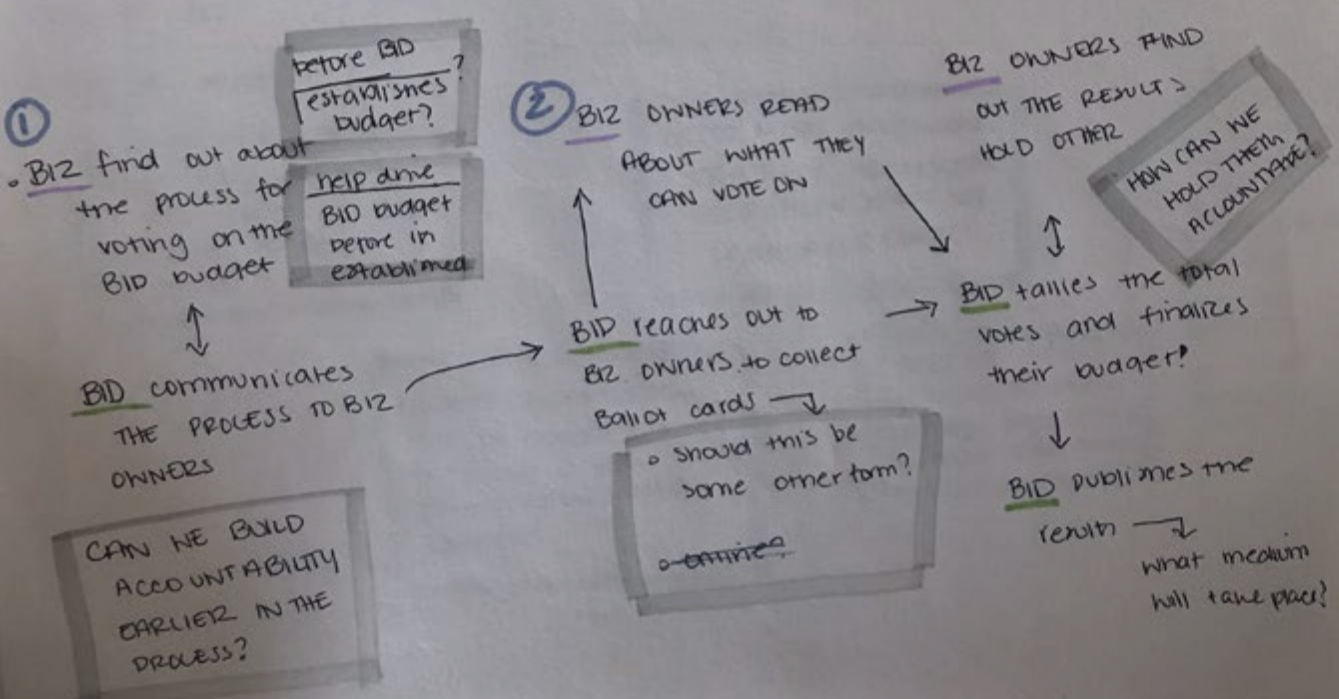 ①
• BIZ find out about
the process for
voting on the
BID budget
before BID
establishes?
budget?
help drive
BID budget
before in
established
BID communicates
THE PROCESS TO BIZ
OWNERS
CAN WE BUILD
ACCOUNTABILITY
EARLIER IN THE
PROCESS?
②
BIZ OWNERS READ
ABOUT WHAT THEY
CAN VOTE ON
BID reaches out to
BIZ owners to collect
Ballot cards
o should this be
some other form?
BIZ OWNERS FIND
OUT THE RESULTS
HOLD OTHER
HOW CAN WE
HOLD THEM
ACCOUNTABLE?
BID tallies the total
votes and finalizes
their budget!
BID publishes the
results
what medium
will take place?